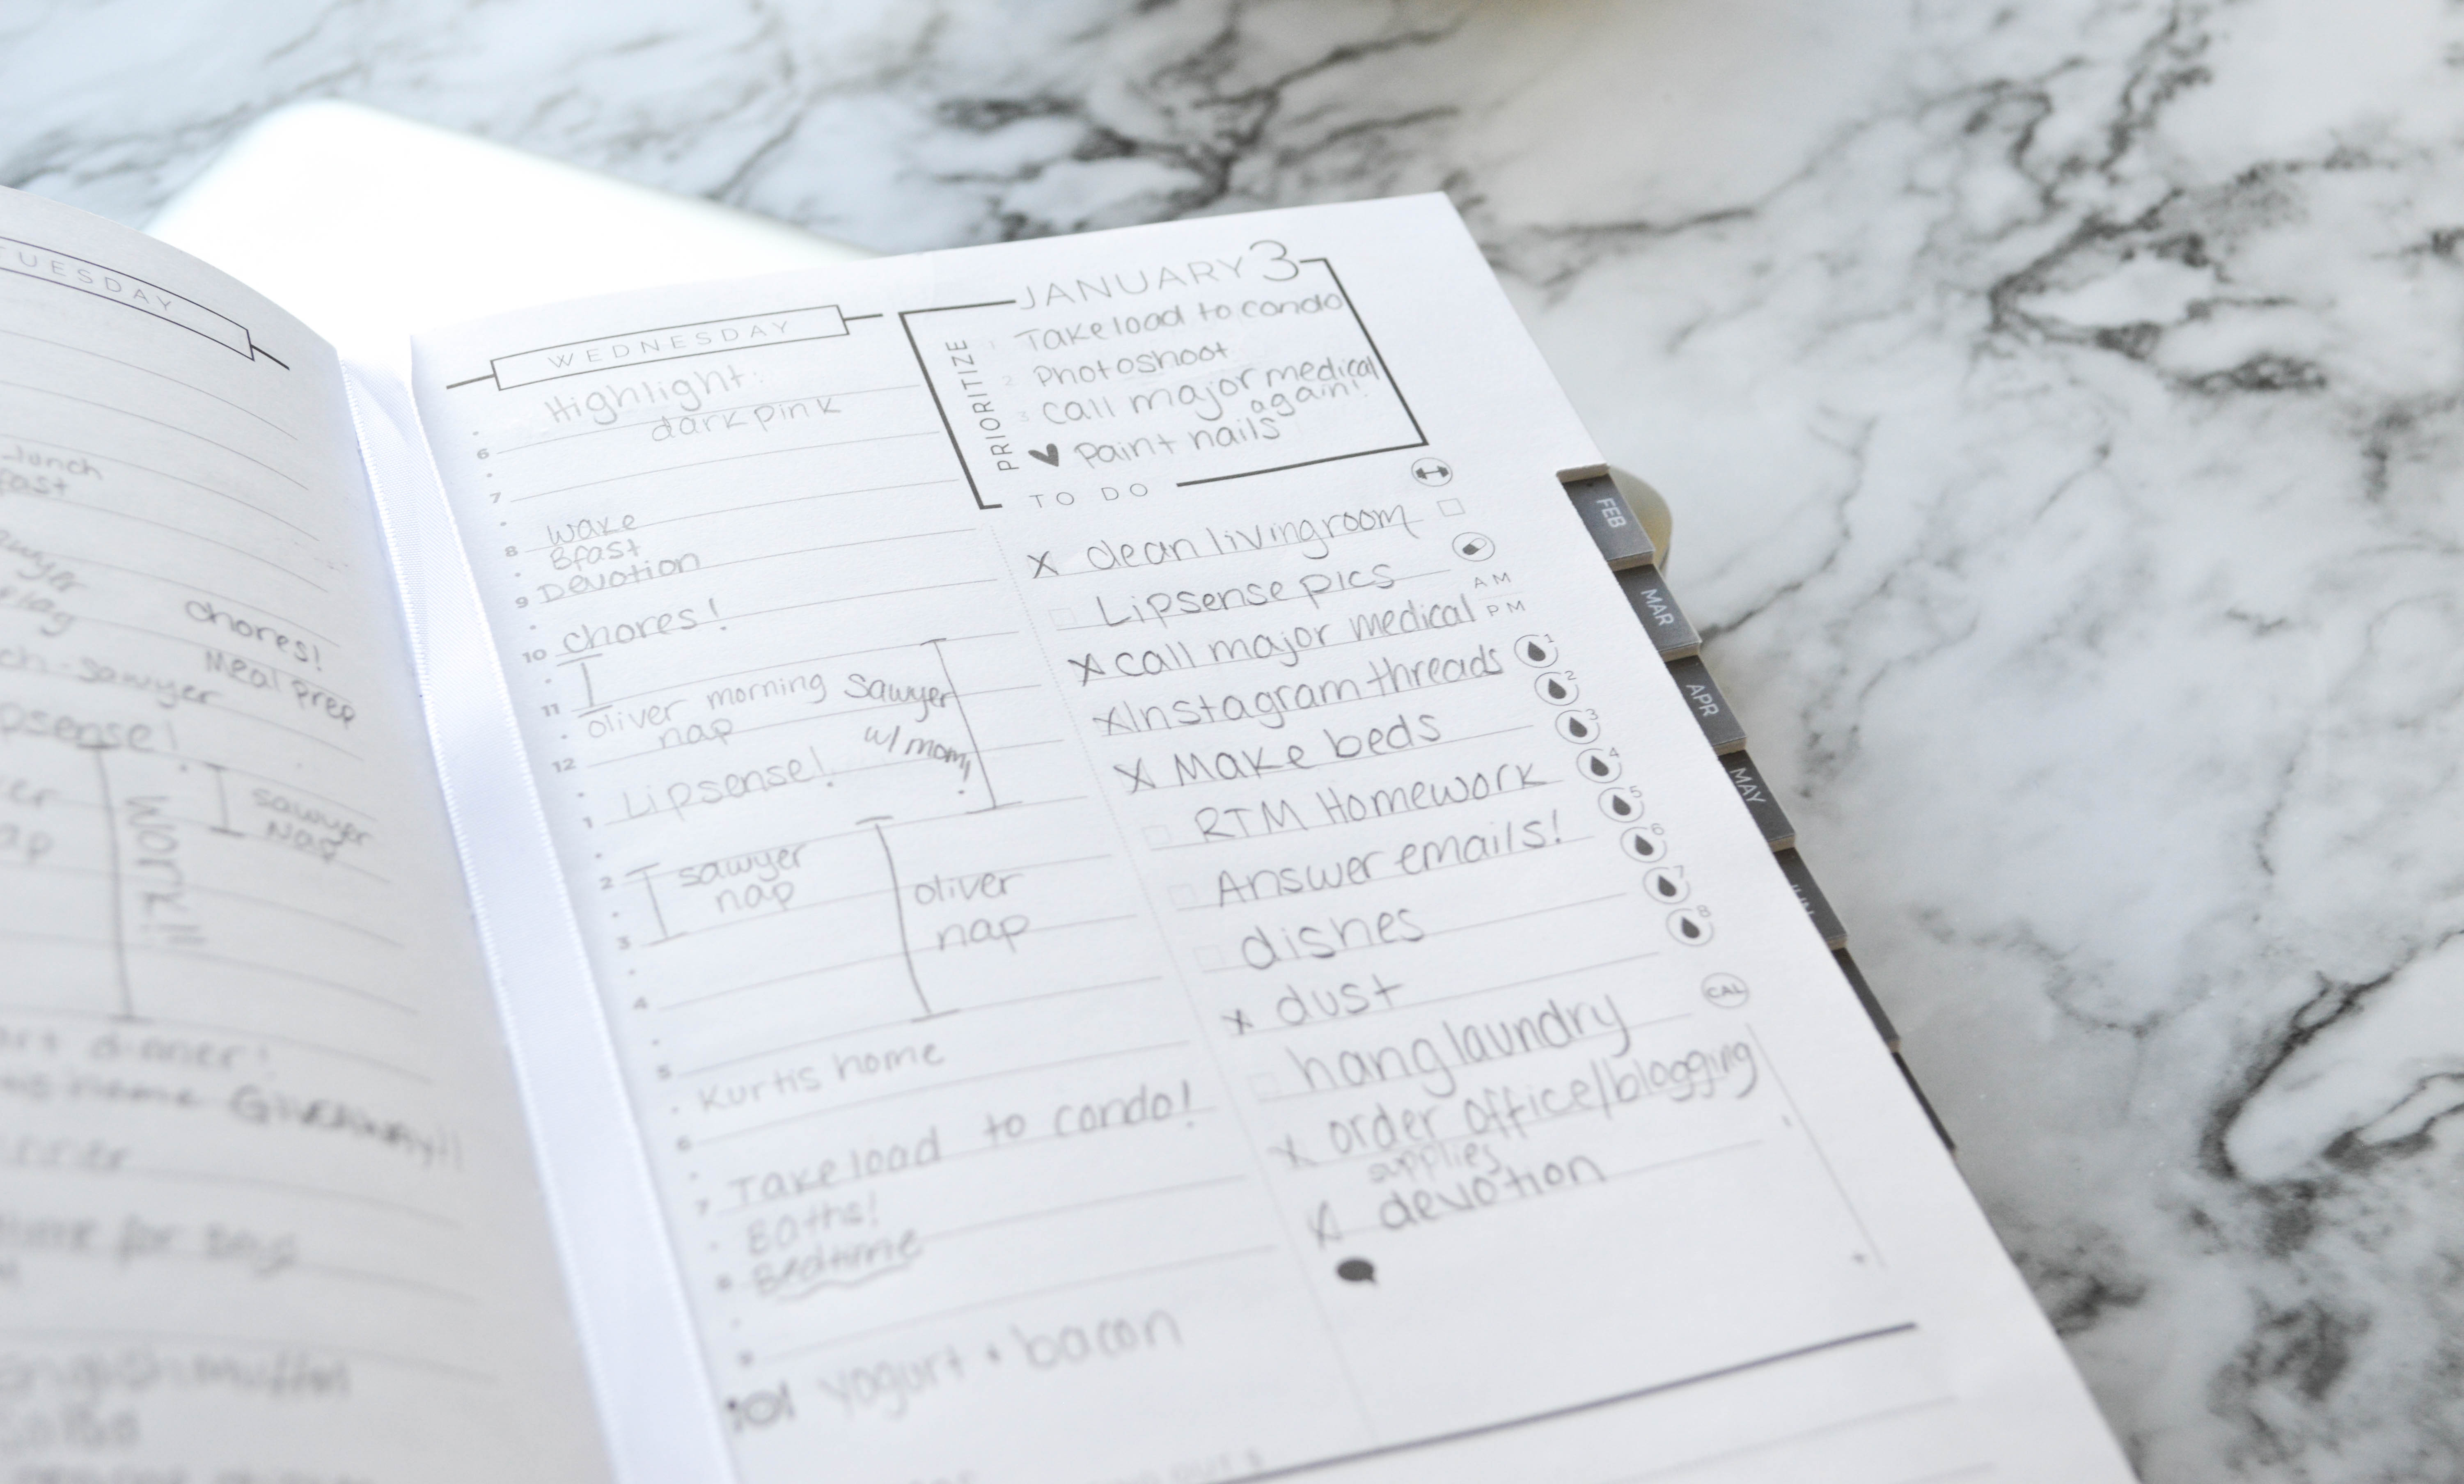 TUESDAY
lunch
chores!
Meal Prep
Sawyer
WORK!!
sawyer
Nap
dinner!
home Giveaway!!
time for
WEDNESDAY
Highlight:
dark pink
6
7
wake
8
Bfast
Devotion
9
chores!
10
11
oliver morning
nap
Sawyer
w/ mom!
12
Lipsense!
1
2
sawyer
nap
oliver
nap
3
4
5
Kurtis home
6
Take load to condo!
7
Baths!
8
Bedtime
9
yogurt + bacon
JANUARY 3
PRIORITIZE
1 Take load to condo
2 Photoshoot
3 call major medical
again!
Paint nails
TO DO
X clean livingroom
Lipsense pics
X call major medical
X Instagram threads
X Make beds
RTM Homework
Answer emails!
dishes
X dust
hang laundry
X order office/blogging
supplies
X devotion
AM
PM
1
2
3
4
5
6
7
8
CAL
FEB
MAR
APR
MAY
JUN